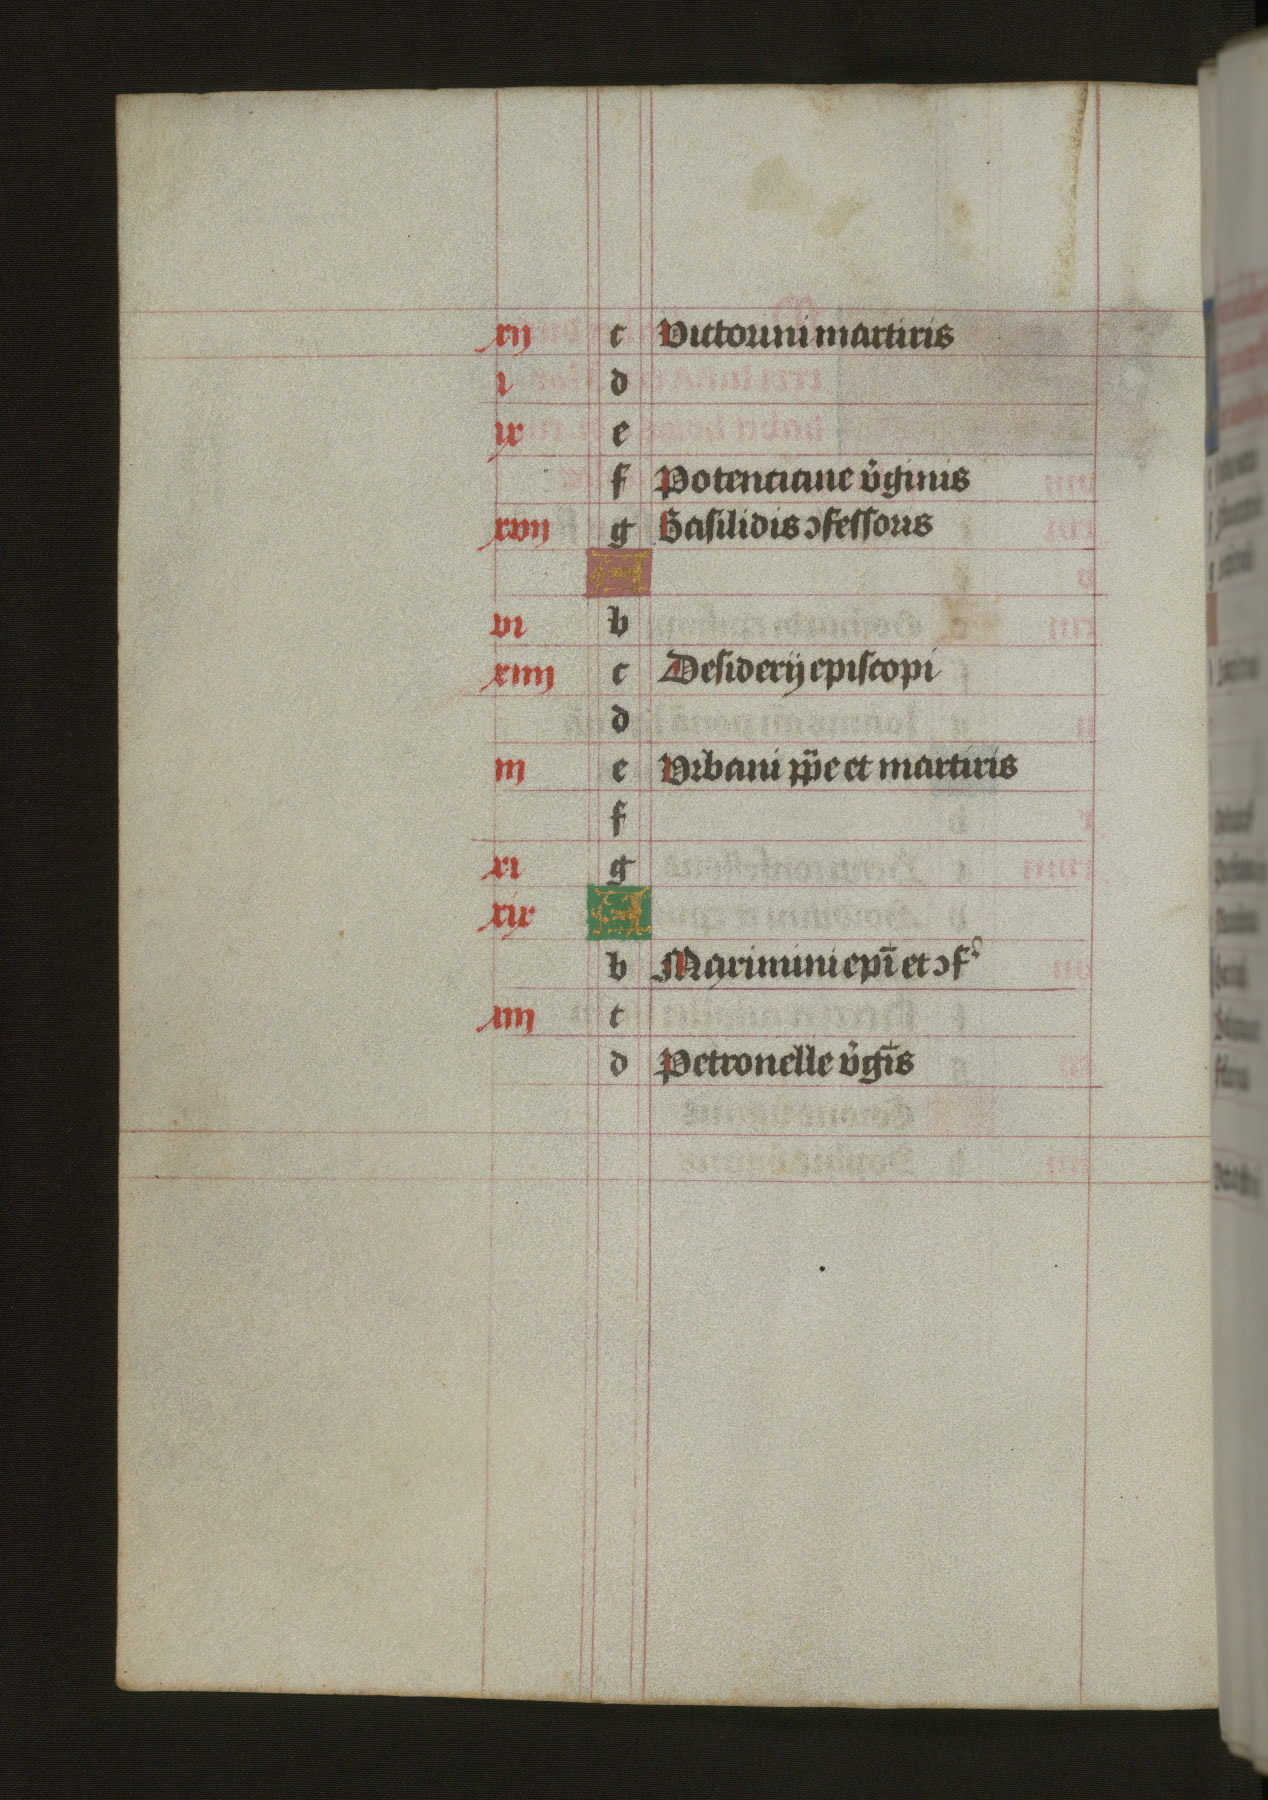 xij c Victorini martiris
i d
ix e
f Potenciane v̓ginis
xvij g Basilidis ɔfessoris
A
vi b
xiiij c Desiderij episcopi
d
iij e Vrbani pp̄e et martiris
f
xi g
xix A
b Maximini epi̅ et ɔf
iiij c
d Petronelle v̓gi̅s